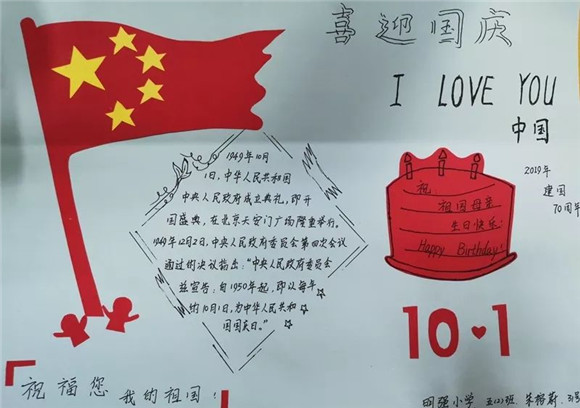 喜迎国庆
I LOVE YOU
中国
1949年10月
1日,中华人民共和国
中央人民政府成立典礼,即开
国盛典,在北京天安门广场隆重举行。
1949年12月2日,中央人民政府委员会第四次会议
通过的决议指出:“中央人民政府委员会
兹宣告:自1950年起,即以每年
的10月1日,为中华人民共和
国国庆日。”
祝
祖国母亲
生日快乐
Happy Birthday
2019年
建国
70周年
10·1
祝福您 我的祖国!
明强小学 五(2)班